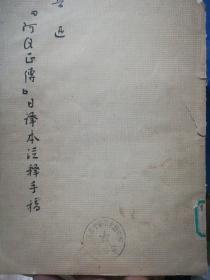 鲁迅
『阿Q正傳』日譯本注釋手稿